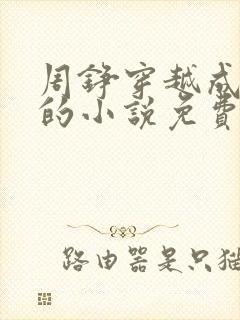 周錚穿越成
的小說免費
路由器是只猫